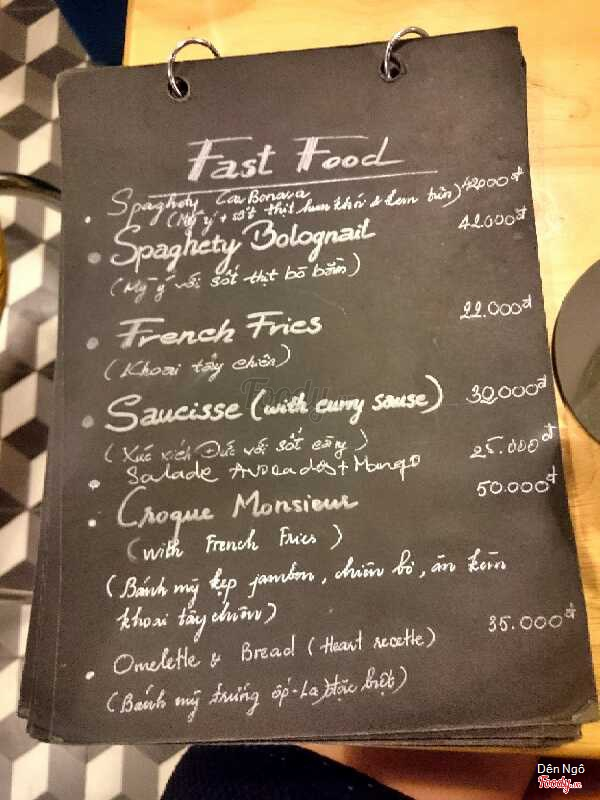 Fast Food
• Spaghety CarBonara 42000đ
(Mỳ ý + sốt thịt hun khói & kem trứn)
• Spaghety Bolognait 42.000đ
(Mỳ ý với sốt thịt bò bằm)
• French Fries 22.000đ
(Khoai tây chiên)
• Saucisse (with curry sause) 32.000đ
(Xúc xích Đức với sốt cary)
• Salade Avocados + Mango 25.000đ
• Croque Monsieur 50.000đ
(with French Fries)
(Bánh mỳ kẹp jambon, chiên bơ, ăn kèm
khoai tây chiên)
• Omelette & Bread (Heart recette) 35.000đ
(Bánh mỳ trứng ốp-La đặc biệt)
Foody
Dên Ngô
Foody.vn